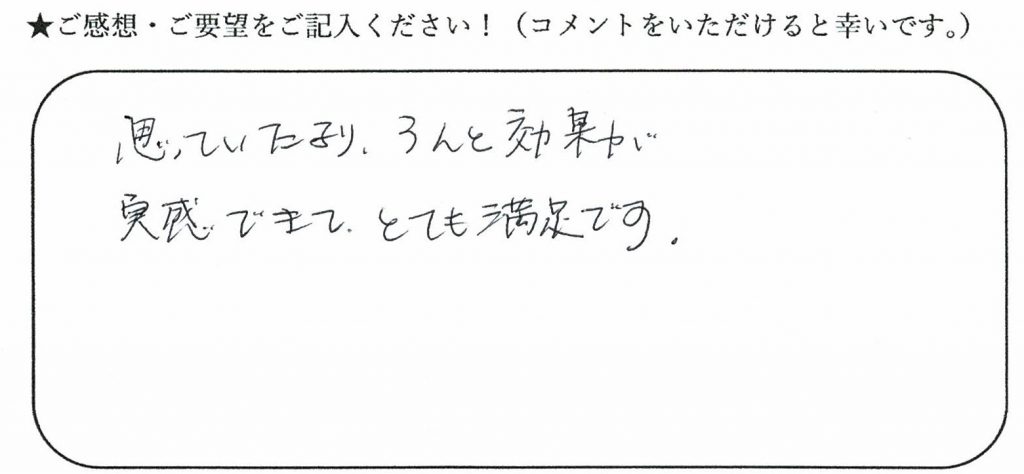 ★ご感想・ご要望をご記入ください！（コメントをいただけると幸いです。）
思っていたより、うんと効果が
実感できて、とても満足です.